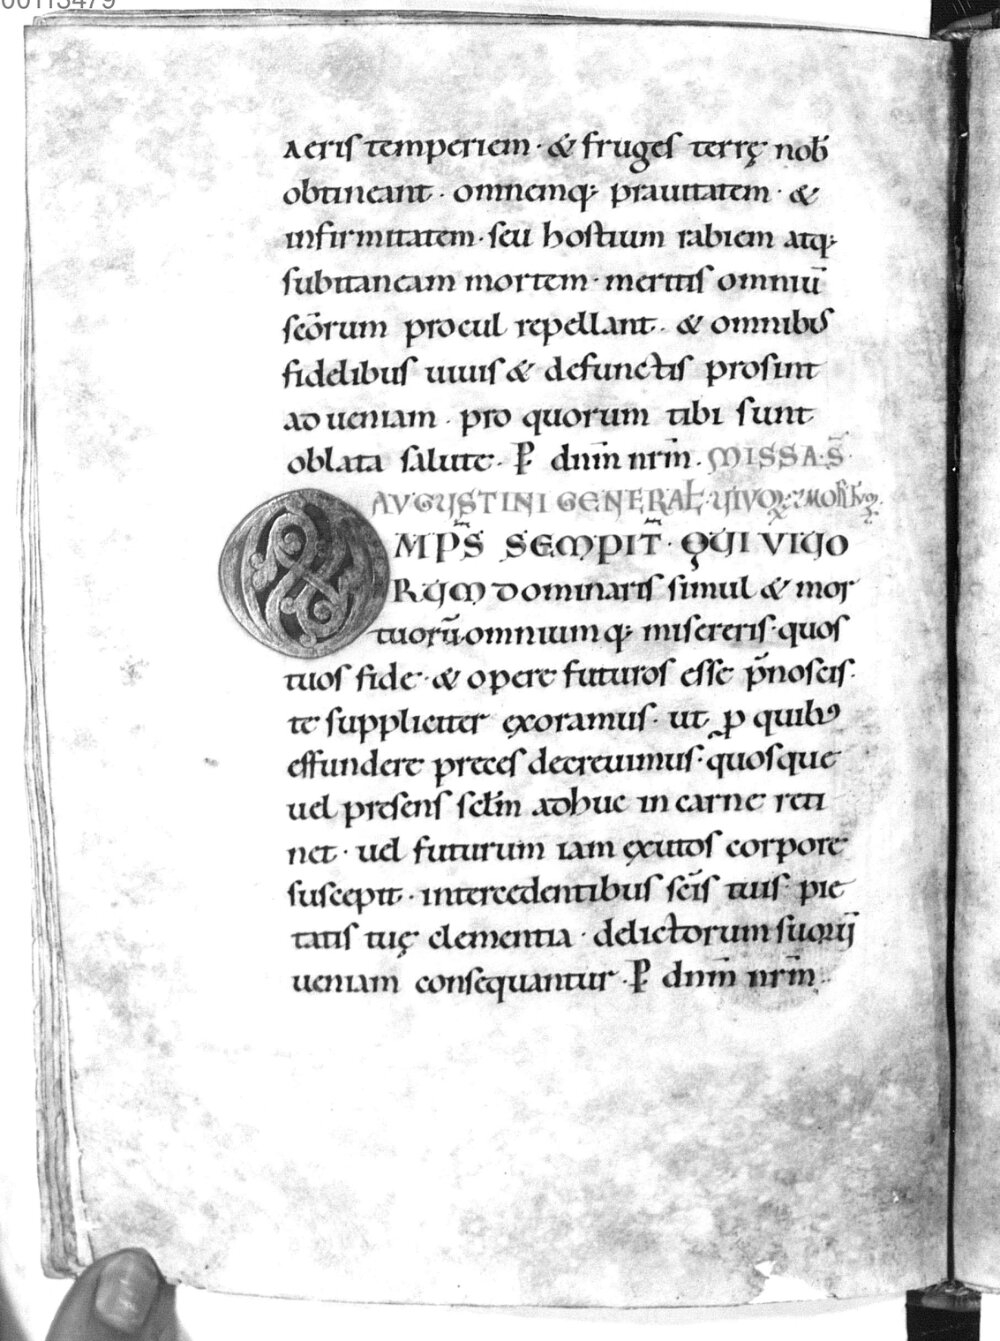 00113479
aeris temperiem · & fruges terrę nob̄
obtineant · omnemq; prauitatem · &
infirmitatem · seu hostium rabiem atq;
subitaneam mortem · meritis omniū
sc̄orum procul repellant · & omnibus
fidelibus uiuis & defunctis prosint
ad ueniam · pro quorum tibi sunt
oblata salute · P̄ dnm̄ nrm̄ · MISSA · S̄ ·
AUGUSTINI GENERAL ·
OMPS̄ SEMPIT̄ · QUI VIUO
RUM dominaris simul & mor
tuorū omnium q; misereris · quos
tuos fide · & opere futuros esse p̄noscis ·
te suppliciter exoramus · ut ꝓ quib;
effundere preces decreuimus · quosque
uel presens sclm̄ adhuc in carne reti
net · uel futurum iam exutos corpore
suscepit · intercedentibus sc̄is tuis pie
tatis tuę clementia · delictorum suorū
ueniam consequantur · P̄ dnm̄ nrm̄ ·